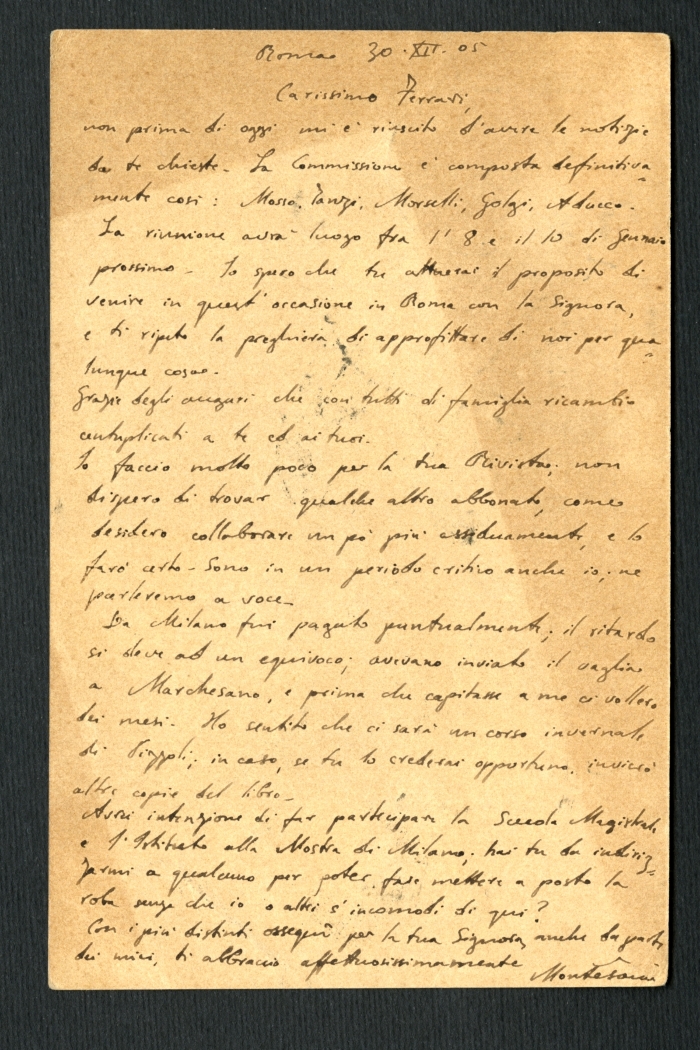 Roma 30. XII. 05
Carissimo Ferrari,
non prima di oggi mi è riuscito d'avere le notizie
da te chieste. La Commissione è composta definitiva-
mente così: Mosso, Tanzi, Morselli, Golgi, Aducco.
La riunione avrà luogo fra l'8 e il 10 di Gennaio
prossimo. Io spero che tu attuerai il proposito di
venire in quest'occasione in Roma con la Signora,
e ti ripeto la preghiera di approfittare di noi per qua-
lunque cosa.
Grazie degli auguri che con tutti di famiglia ricambio
centuplicati a te ed ai tuoi.
Io faccio molto poco per la tua Rivista; non
dispero di trovar qualche altro abbonato, come
desidero collaborare un pò più assiduamente, e lo
farò certo. Sono in un periodo critico anche io; ne
parleremo a voce.
Da Milano fui pagato puntualmente; il ritardo
si deve ad un equivoco; avevano inviato il vaglia
a Marchesano, e prima che capitasse a me ci vollero
dei mesi. Ho sentito che ci sarà un corso invernale
di ; in caso, se tu lo crederai opportuno, invierò
altre copie del libro.
Avrei intenzione di far participare la Scuola Magistrale
e l'Istituto alla Mostra di Milano; hai tu da indiriz-
zarmi a qualcuno per poter fare mettere a posto la
roba senza che io o altri s'incomodi di qui?
Con i più distinti ossequi per la tua Signora, anche da parte
dei miei, ti abbraccio affettuosissimamente
Montesano